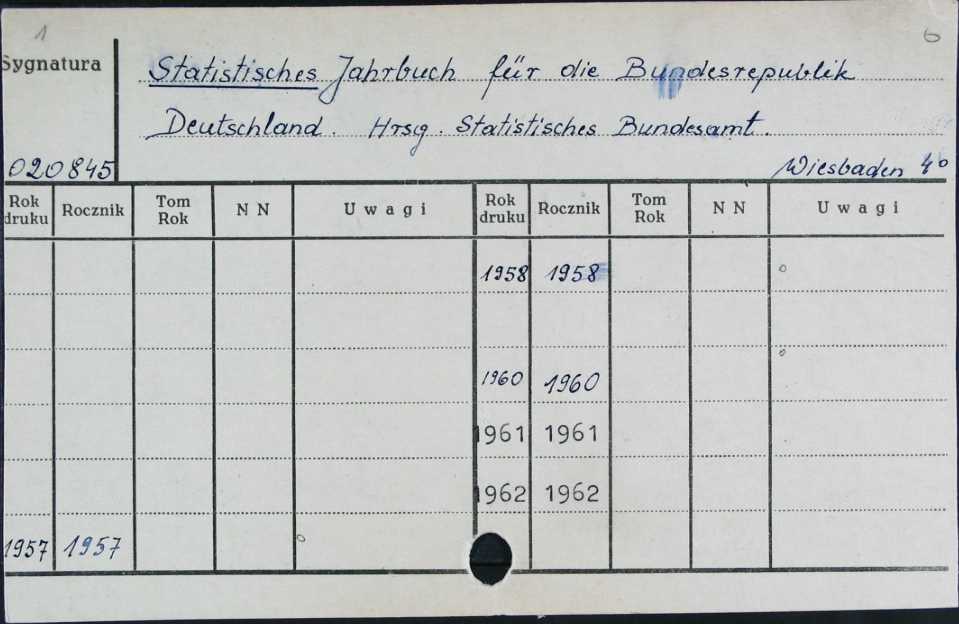 1
6
Sygnatura
Statistisches Jahrbuch für die Bundesrepublik
Deutschland. Hrsg. Statistisches Bundesamt.
020845
Wiesbaden 4°
Rok druku Rocznik Tom Rok N N Uwagi Rok druku Rocznik Tom Rok N N Uwagi
1958 1958
1960 1960
1961 1961
1962 1962
1957 1957